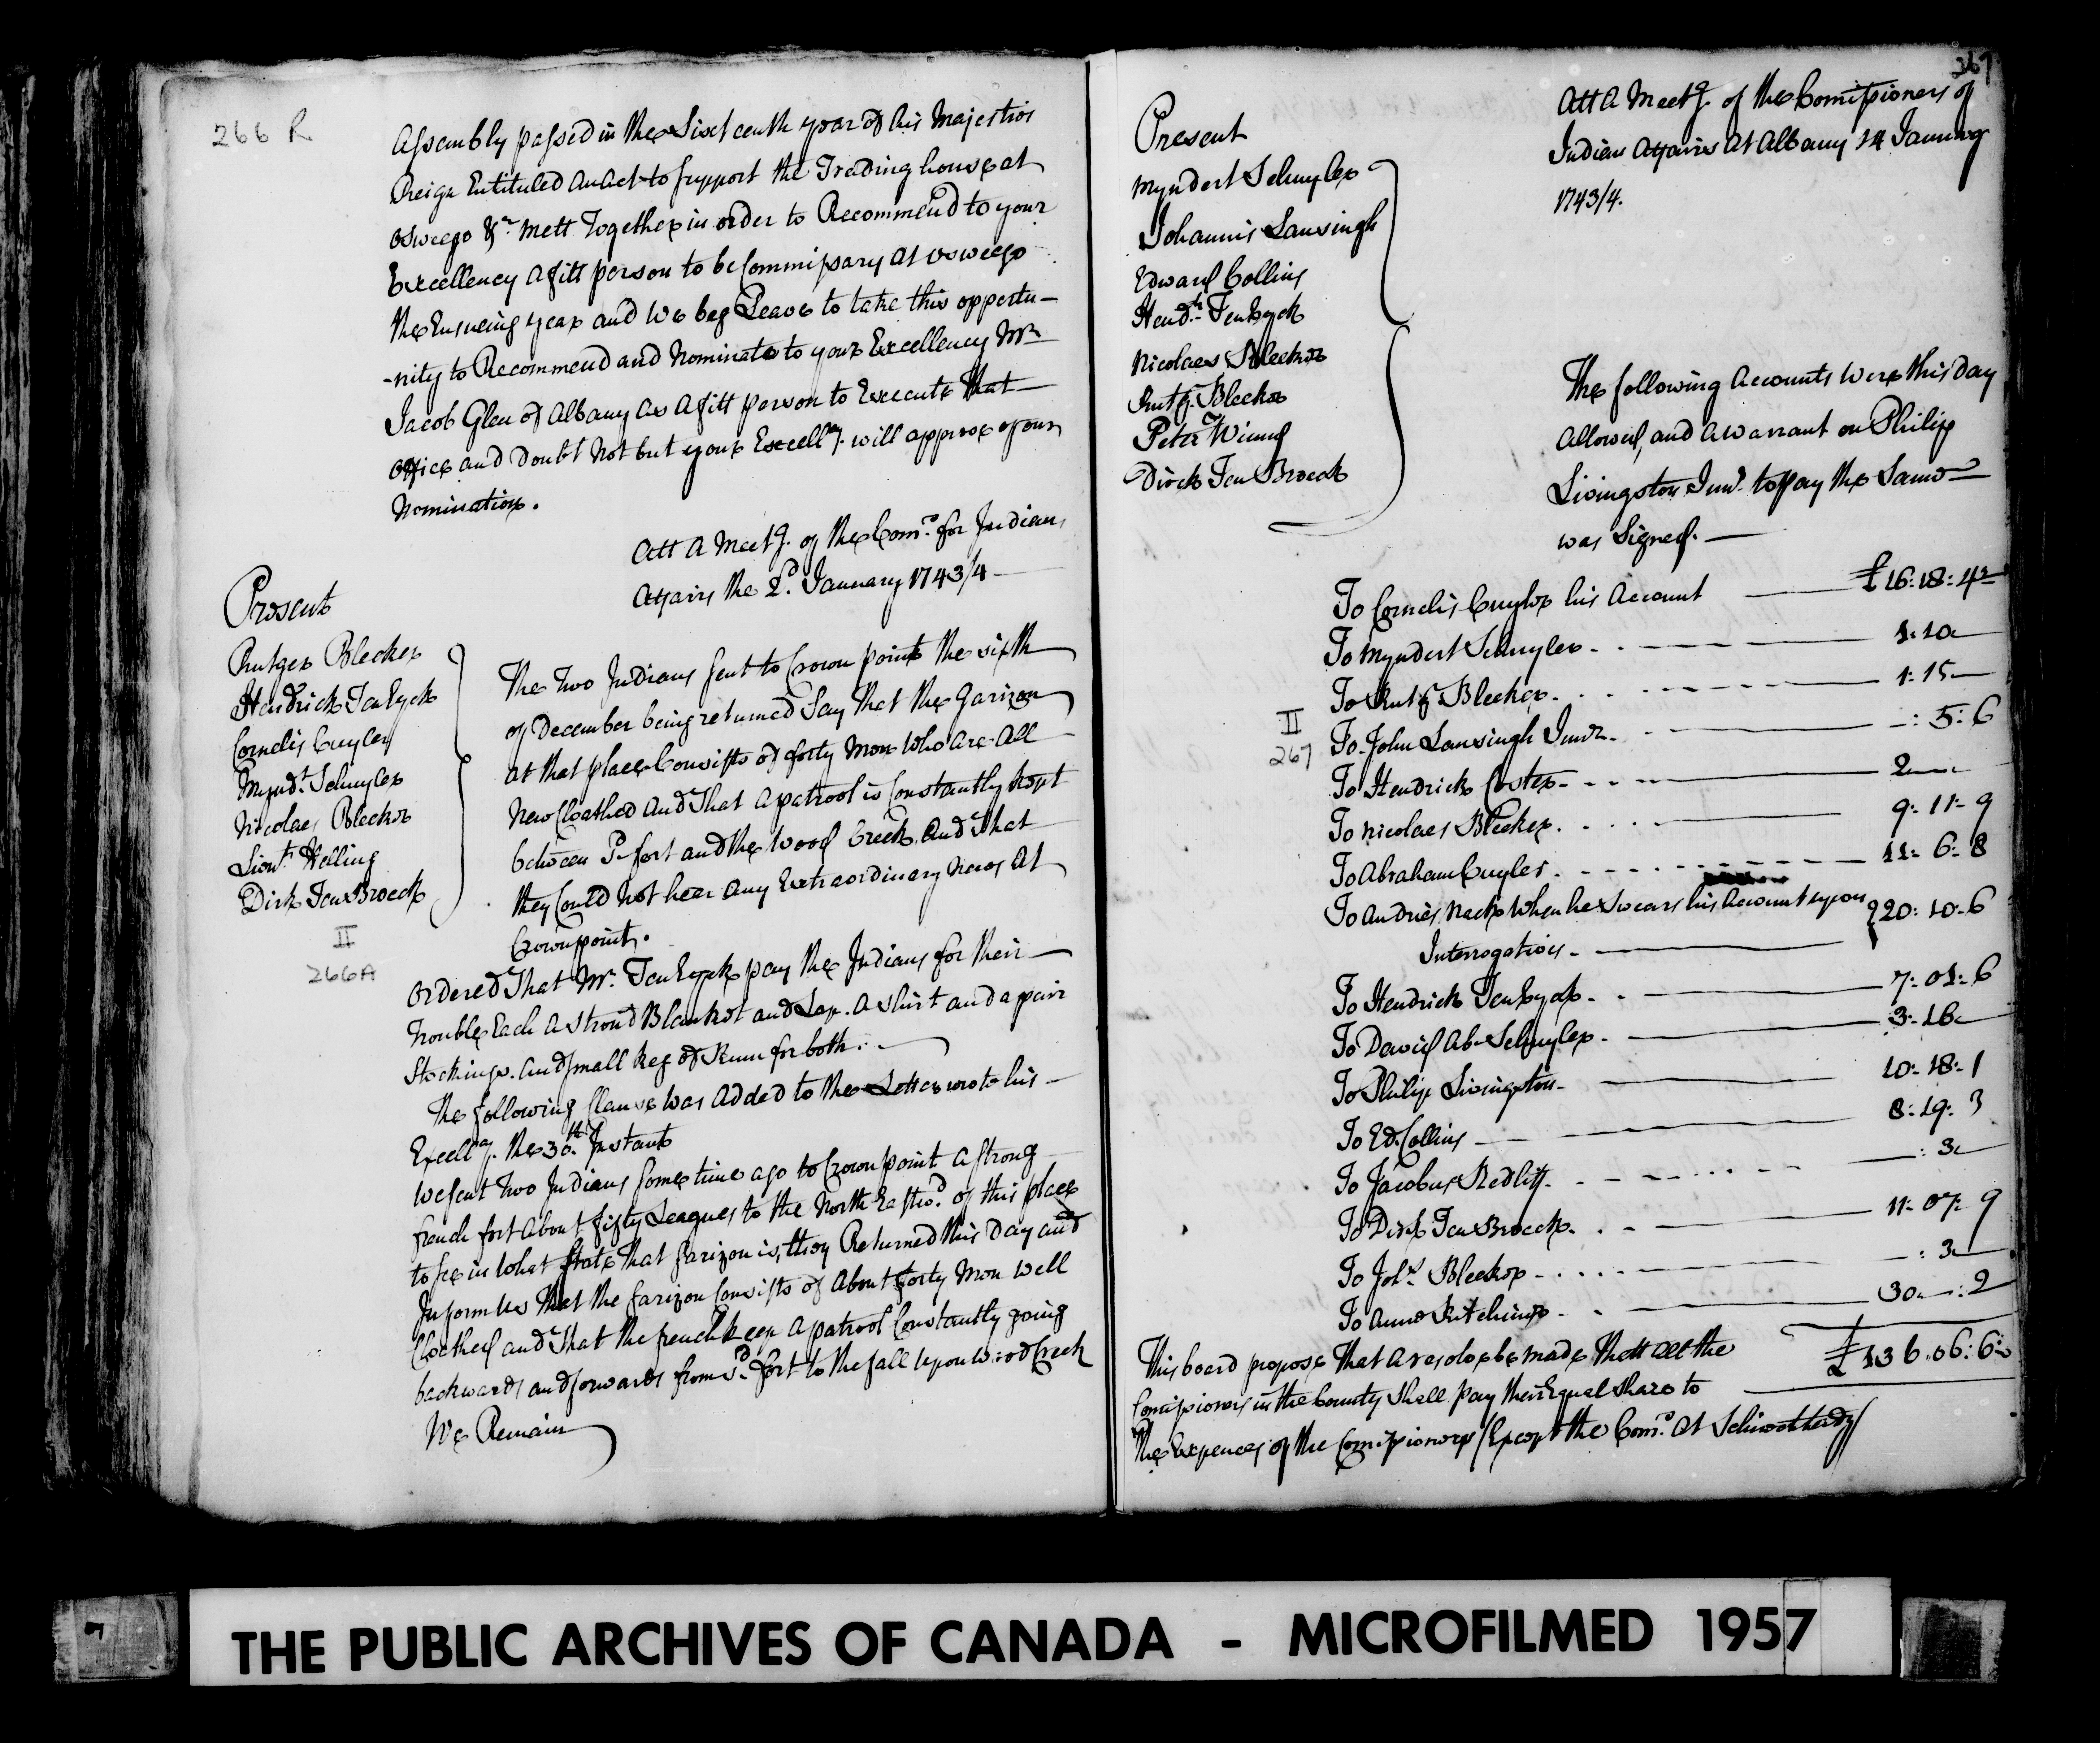 266 R
Assembly passed in the Sixteenth year of his Majesties
Reign Entituled an Act to support the Trading house at
Oswego &c. mett Together in order to Recommend to your
Excellency a fitt person to be Commissary at Oswego
the Ensueing year and we beg Leave to take this opportu-
-nity to Recommend and Nominate to your Excellency Mr
Jacob Glen of Albany as a fitt person to Execute that
office and doubt Not but your Excellcy. will approve of our
Nomination.
Att a Meetg. of the Comrs. for Indian
Affairs the 2d. January 1743/4
Present
Rutger Bleeker
Hendrick TenEyck
Cornelis Cuyler
Myndt. Schuyler
Nicolaes Bleeker
Lieut. Helling
Dirk Ten Broeck
II
266A
The two Indians sent to Crown point the sixth
of December being returned Say that the Garizon
at that place Consists of forty Men who are all
New Cloathed and That a patrool is Constantly kept
between sd. fort and the Wood Creek, and That
they Could not hear any Extraordinary News at
Crownpoint.
Ordered That Mr. TenEyck pay the Indians for their
trouble Each a stroud Blanket and Lap. a shirt and a pair
Stockings. and small keg of Rum for both.
The following Clause was added to the Letter wrote his
Excellcy. the 30th. Instant
We sent two Indians some time ago to Crownpoint a strong
french fort about fifty Leagues to the North Eastwd. of this place
to see in what state that garizon is, they Returned this day and
Inform us that the Garizon Consists of about forty Men well
Cloathed and That the french keep a patrool Constantly going
backwards and forwards from sd. fort to the fall upon Wood Creek
We Remain
267
Present
Myndert Schuyler
Johannis Lansingh
Edward Collins
Hendk. TenEyck
Nicolaes Bleeker
Rutg. Bleeker
Peter Winne
Dirck Ten Broeck
Att a Meetg. of the Comissioners of
Indian Affairs at Albany 14 January
1743/4.
The following Accounts were this day
allowed, and a Warrant on Philip
Livingston Junr. to pay the Same
was Signed.
To Cornelis Cuyler his Account £16:18:4
To Myndert Schuyler 1:10
To Rutg Bleeker 1:15
II
267
To John Lansingh Junr. -:5:6
To Hendrick Coster 2
To Nicolaes Bleeker 9:11:9
To Abraham Cuyler 11:6:8
To Andries Nack when he Swears his Account upon
Interrogation 20:10:6
To Hendrick TenEyck 7:01:6
To David Ab. Schuyler 3:16
To Philip Livingston 10:18:1
To Ed. Collins 8:19:3
To Jacobus Redliff :3
To Dirk Ten Broeck 11:07:9
To Johs. Bleeker -:3
To Anna Hutchings 30:-:2
£136:06:6
This board propose That a resolve be made That all the
Comissioners in the County Shall pay their Equal share to
the Expences of the Comissioners (Except the Comrs. at
THE PUBLIC ARCHIVES OF CANADA - MICROFILMED 1957